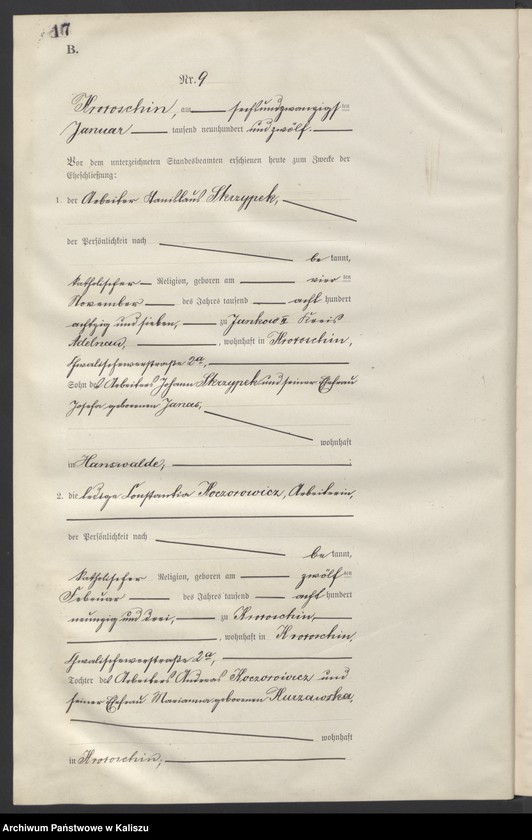 17
B.
Nr. 9
Krotoschin, am sechsundzwanzigsten
Januar tausend neunhundert und zwölf.
Vor dem unterzeichneten Standesbeamten erschienen heute zum Zwecke der
Eheschließung:
1. der Arbeiter Stanislaus Skrzypek,
der Persönlichkeit nach
be kannt,
katholischer Religion, geboren am vierten
November des Jahres tausend acht hundert
achtzig und sieben, zu Jankow II Kreis
Adelnau, , wohnhaft in Krotoschin,
straße 2a,
Sohn des Arbeiters Johann Skrzypek und seiner Ehefrau
Josefa geborenen Janas,
wohnhaft
in Hanswalde, .
2. die ledige Constantia Koczorowicz, Arbeiterin,
der Persönlichkeit nach
be kannt,
katholischer Religion, geboren am zwölften
Februar des Jahres tausend acht hundert
neunzig und drei, zu Krotoschin,
, wohnhaft in Krotoschin,
straße 2a,
Tochter des Arbeiters Andreas Koczorowicz und
seiner Ehefrau Marianna geborenen Kurzawska,
wohnhaft
in Krotoschin,
Archiwum Państwowe w Kaliszu